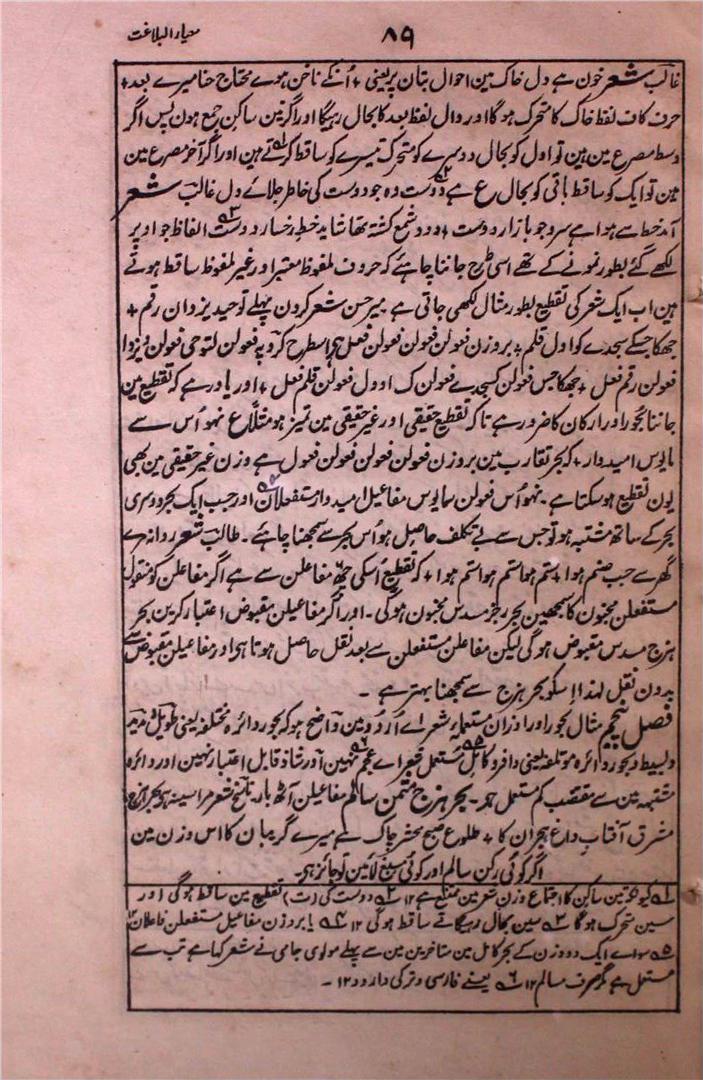 معیار البلاغت
۸۹
غالب شعر خون ہے دل خاک مین احوال بتان پر یعنی + اُنکے ناخن ہوے محتاج حنا میرے بعد +
حرف کاف لفظ خاک کا متحرک ہوگا اور وال لفظ بعد کا بحال رہیگا اور اگر تین ساکن جمع ہون پس اگر
وسط مصرع مین ہین تو اول کو بحال دوسرے کو متحرک تیسرے کو ساقط کرتے ہین اور اگر آخر مصرع مین
ہین تو ایک کو ساقط باقی کو بحال رع ہے دوست وہ جو دوست کی خاطر جلائے دل غالب شعر
آمد خط سے ہوا ہے سرد جو بازار دوست + دود شمع کشتہ تھا شاید خط رخسار دوست الفاظ جو اوپر
لکھے گئے بطور نمونے کے تھے اسی طرح جاننا چاہئے کہ حروف ملفوظ معتبر اور غیر ملفوظ ساقط ہوتے
ہین اب ایک شعر کی تقطیع بطور مثال لکھی جاتی ہے میر حسن شعر کرون پہلے توحید یزدان رقم +
جھکا جسکے سجدے کو اول قلم + بروزن فعولن فعولن فعولن فعل ہی اسطرح کرو پہ فعولن لتوحی فعولن دیزدا
فعولن رقم فعل + جھکا جس فعولن کسجدے فعولن ک اوول فعولن قلم فعل + اور یاد رہے کہ تقطیع مین
جاننا بحور اور ارکان کا ضرور ہے تاکہ تقطیع حقیقی اور غیر حقیقی مین تمیز ہو مثلاً ع نہو اُس سے
مایوس امیدوار + کہ بحر تقارب مین بروزن فعولن فعولن فعولن فعول ہے وزن غیر حقیقی مین بھی
یون تقطیع ہوسکتا ہے۔ نہو اُس فعولن سمایوس مفاعیل امیدوار مستفعلان اور جب ایک بحر دوسری
بحر کے ساتھ مشتبہ ہو تو جس سے بے تکلف حاصل ہو اُس بحر سے سمجھنا چاہئے۔ طالب شعر روانہ
گھر سے جب صنم ہوا + ستم ہوا ستم ہوا ستم ہوا + کہ تقطیع اسکی چھ مفاعلن سے ہے اگر مفاعلن کو منقول
مستفعلن مخبون کا سمجھین بحر رجز مسدس مخبون ہوگی۔ اور اگر مفاعیلن مقبوض اعتبار کرین بحر
ہزج مسدس مقبوض ہوگی لیکن مفاعلن مستفعلن سے بعد نقل حاصل ہوتا ہی اور مفاعیلن مقبوض سے
بدون نقل لہذا اسکو بحر ہزج سے سمجھنا بہتر ہے ۔
فصل پنجم مثال بحور اور اوزان مستعملہ شعراے اُردو مین واضح ہو کہ بحور دائرہ مختلفہ یعنی طویل و مدید
و بسیط و بحور دائرہ موتلفہ یعنی وافر و کامل مستعمل شعراے عجم نہین اور شاذ قابل اعتبار نہین اور دائرہ
مشتبہ مین سے مقتضب کم مستعمل ہی۔ بحر ہزج مثمن سالم مفاعیلن آٹھ بار ناسخ شعر مرا سینہ ہی
مشرق آفتاب داغ ہجران کا + طلوع صبح محشر چاک ہے میرے گریبان کا اس وزن مین
اگر کوئی رکن سالم اور کوئی مسبغ لائین تو جائز ہی۔
۵۱ کیونکہ تین ساکن کا اجتماع وزن شعر مین ممتنع ہے ۱۲ ۵۲ دوست کی (ت) تقطیع مین ساقط ہوگی اور
سین متحرک ہوگا ۵۳ سین بحال رہیگا تے ساقط ہوگی ۱۲ ۵۴ یا بروزن مفاعیل مستفعلن فاعلان ۱۲
۵۵ سواے ایک دو وزن کے بحر کامل مین متاخرین مین سے پہلے مولوی جامی نے شعر کہا ہے تب سے
مستعمل ہے مگر صرف سالم ۱۲ ۵۶ یعنے فارسی و ترکی دار دو ۱۲ ۔